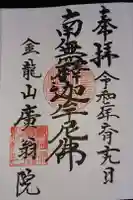 奉拝 令和 年 月 日
南無釈迦牟尼佛
金龍山 廣翁院